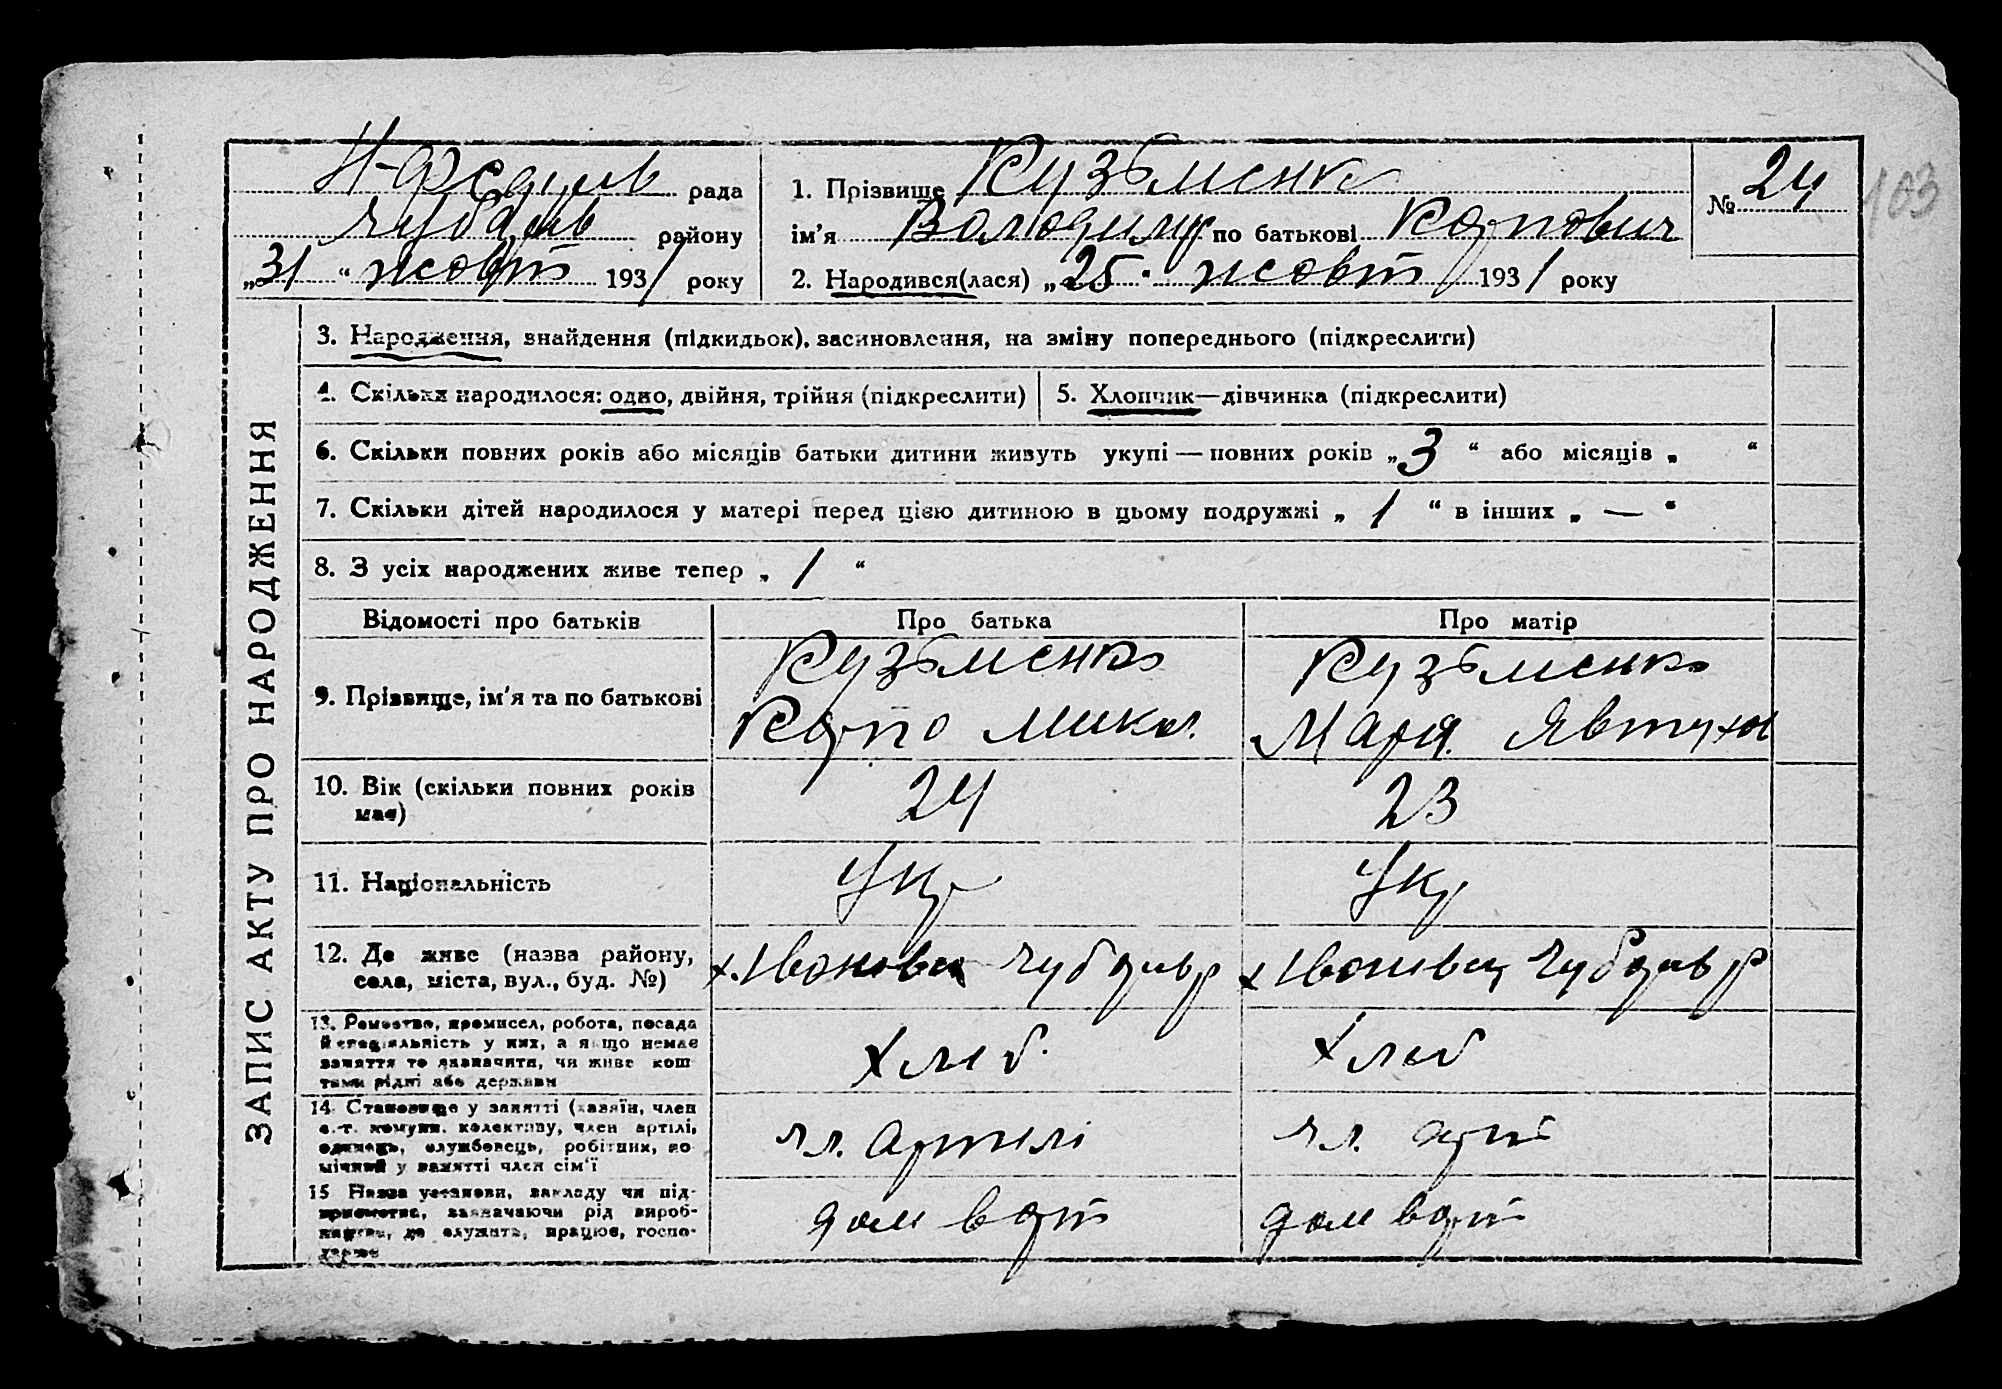 рада
району
„31“ жовт 1931 року
1. Прізвище Кузьменко
ім'я Володимир по батькові Карпович
2. Народився(лася) „25“ жовт 1931 року
№ 24
103
ЗАПИС АКТУ ПРО НАРОДЖЕННЯ
3. Народження, знайдення (підкидьок), засиновлення, на зміну попереднього (підкреслити)
4. Скільки народилося: одно, двійня, трійня (підкреслити)
5. Хлопчик—дівчинка (підкреслити)
6. Скільки повних років або місяців батьки дитини живуть укупі — повних років „3“ або місяців „ “
7. Скільки дітей народилося у матері перед цією дитиною в цьому подружжі „1“ в інших „—“
8. З усіх народжених живе тепер „1“
Відомості про батьків
Про батька
Про матір
9. Прізвище, ім'я та по батькові
Кузьменко
Карпо Микол.
Кузьменко
Мария Явтухи
10. Вік (скільки повних років
має)
24
23
11. Національність
Укр
Укр
12. Де живе (назва району,
села, міста, вул., буд. №)
х. Івановка Чубарів р
х Іванівка, Чубарів р
13. Ремество, промисел, робота, посада
й спеціяльність у них, а якщо немає
заняття то зазначити, чи живе кош-
тами рідні або держави
Хліб.
Хліб
14. Становище у занятті (хазяїн, член
с.-г. комуни, колективу, член артілі,
одинець, службовець, робітник, по-
мічний у занятті член сім'ї
чл. артілі
чл. арті
15. Назва установи, закладу чи під-
приємства, зазначаючи рід вироб-
ництва, де служить, працює, госпо-
дарює